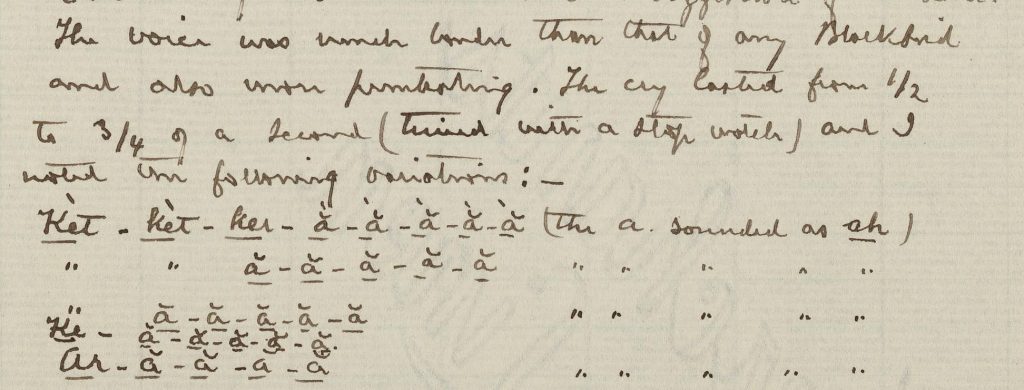 The voice was much louder than that of any Blackbird
and also more penetrating. The cry lasted from 1/2
to 3/4 of a second (timed with a stop watch) and I
noted the following variations: —
Kèt - kèt - ker - ằ - ằ - ằ - ằ - ằ (the a. sounded as ah)
" " ă - ă - ă - ă - ă " " " " "
" ă - ă - ă - ă - ă " " " " "
Ke - ă - ă - ă - ă - ă.
Ar - ă - ă - a - ă " " " " "